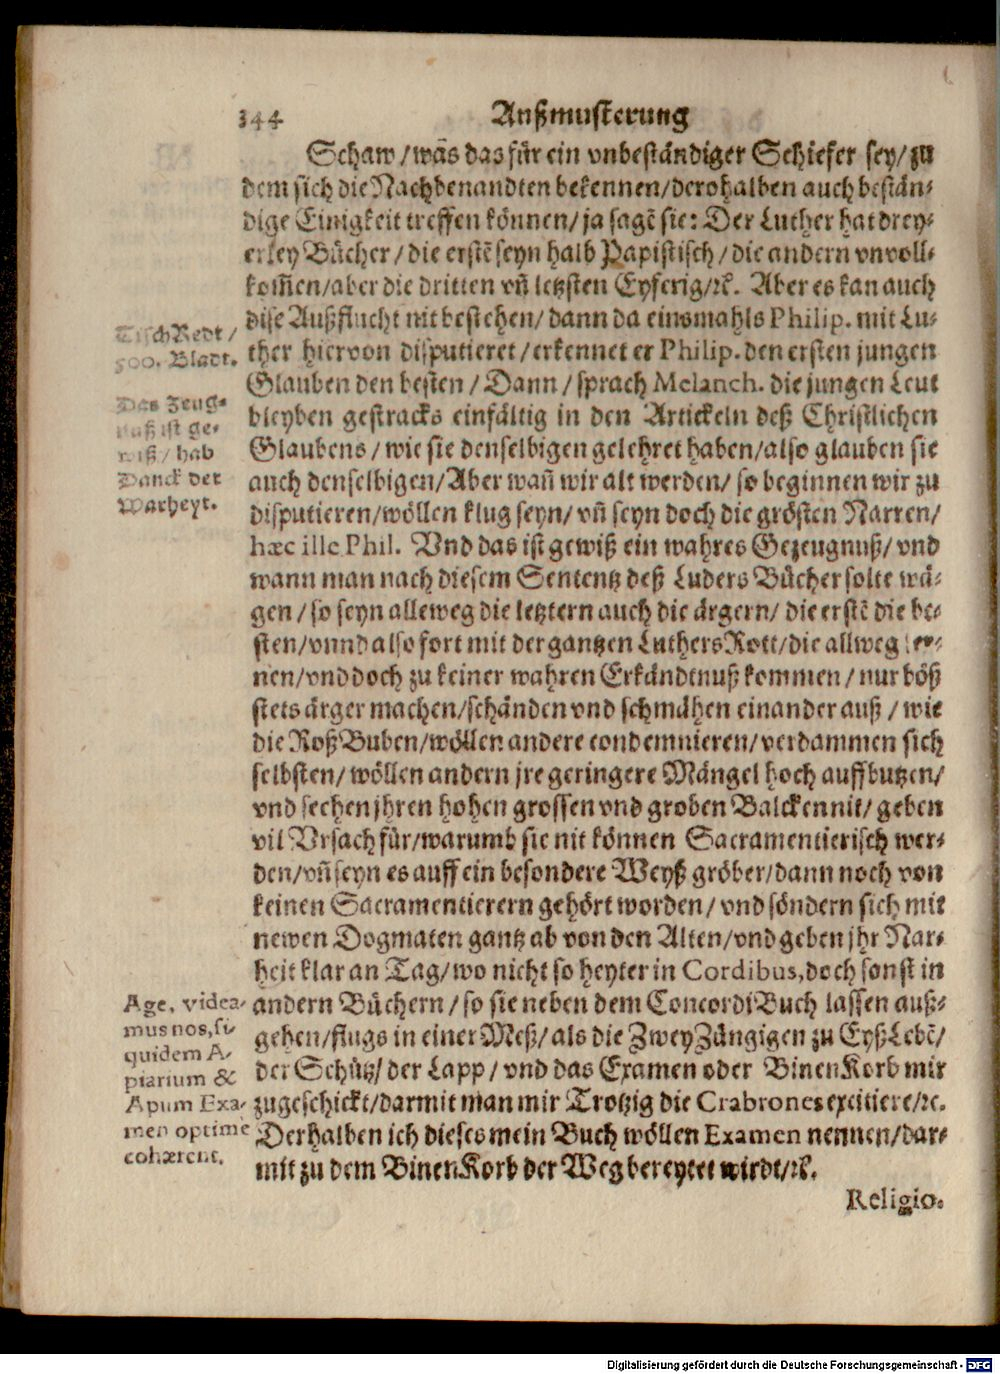 144 Außmusterung
Schaw/was das für ein vnbeständiger Schiefer sey/zu
dem sich die Nachbenandten bekennen/derohalben auch bestän-
dige Einigkeit treffen können/ja sagē sie: Der Luther hat drey-
erley Bücher/die erstē seyn halb Papistisch/die andern vnvoll-
kom̄en/aber die dritten vn̄ letzsten Eyferig/ꝛc. Aber es kan auch
dise Außflucht nit bestehen/dann da einsmahls Philip. mit Lu-
ther hiervon disputieret/erkennet er Philip. den ersten jungen
Glauben den besten/Dann/sprach Melanch. die jungen Leut
bleyben gestracks einfältig in den Artickeln deß Christlichen
Glaubens/wie sie denselbigen gelehret haben/also glauben sie
auch denselbigen/Aber wan̄ wir alt werden/so beginnen wir zu
disputieren/wöllen klug seyn/vn̄ seyn doch die grösten Narren/
hæc ille Phil. Vnd das ist gewiß ein wahres Gezeugnuß/vnd
wann man nach diesem Sententz deß Luders Bücher solte wä-
gen/so seyn alleweg die letztern auch die ärgern/die erstē die be-
sten/vnnd also fort mit der gantzen LuthersRott/die allweg ler-
nen/vnd doch zu keiner wahren Erkändtnuß kommen/nur böß
stets ärger machen/schänden vnd schmähen einander auß/wie
die RoßBuben/wöllen andere condemnieren/verdammen sich
selbsten/wöllen andern jre geringere Mängel hoch auffbutzen/
vnd sechen jhren hohen grossen vnd groben Balcken nit/geben
vil Vrsach für/warumb sie nit können Sacramentierisch wer-
den/vn̄ seyn es auff ein besondere Weyß gröber/dann noch von
keinen Sacramentierern gehört worden/vnd söndern sich mit
newen Dogmaten gantz ab von den Alten/vnd geben jhr Nar-
heit klar an Tag/wo nicht so heyter in Cordibus, doch sonst in
andern Büchern/so sie neben dem ConcordiBuch lassen auß-
gehen/flugs in einer Meß/als die ZweyZüngigen zu EyßLebē/
der Schütz/der Lapp/vnd das Examen oder BinenKorb mir
zugeschickt/darmit man mir Trotzig die Crabrones excitiere/ꝛc.
Derhalben ich dieses mein Buch wöllen Examen nennen/dar-
mit zu dem BinenKorb der Weg bereytet wirdt/ꝛc.
Religio-
TischRedt/
500. Bladt.
Das Zeug-
nuß ist ge-
wiß/hab
Danck der
Warheyt.
Age, videa-
mus nos, si-
quidem A-
piarium &
Apum Exa-
men optime
cohærent.
Digitalisierung gefördert durch die Deutsche Forschungsgemeinschaft - DFG